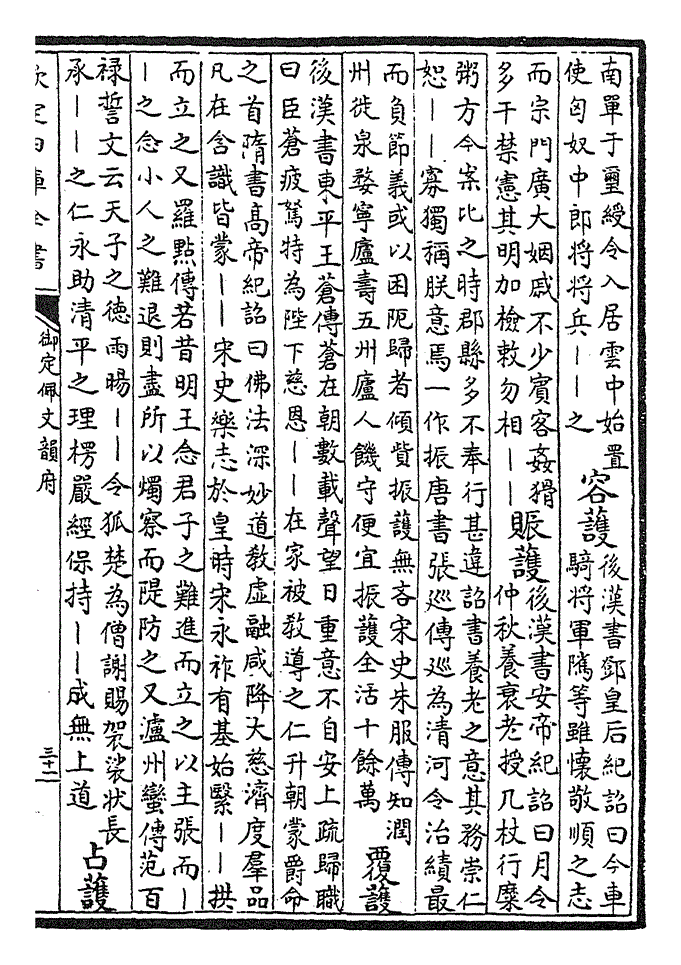 南單于璽綬令入居雲中始置
使匈奴中郎将将兵――之
容䕶
後漢書鄧皇后紀詔曰今車
騎將軍隲等雖懐敬順之志
而宗門廣大姻戚不少賓客姦猾
多干禁憲其明加檢敕勿相――
賑䕶
後漢書安帝紀詔曰月令
仲秋養衰老授几杖行糜
粥方今案比之時郡縣多不奉行甚違詔書養老之意其務崇仁
恕――寡獨稱朕意焉一作振唐書張廵傳廵為清河令治績最
而負節義或以困阨歸者傾貲振䕶無吝宋史朱服傳知潤
州徙泉婺寧廬壽五州廬人饑守便宜振䕶全活十餘萬
覆䕶
後漢書東平王蒼傳蒼在朝數載聲望日重意不自安上疏歸職
曰臣蒼疲駑特為陛下慈恩――在家被教導之仁升朝蒙爵命
之首隋書髙帝紀詔曰佛法深妙道教虛融咸降大慈濟度羣品
凡在含識皆蒙――宋史樂志於皇時宋永祚有基始緊――拱
而立之又羅點傳若昔明王念君子之難進而立之以主張而―
―之念小人之難退則盡所以燭察而隄防之又瀘州蠻傳范百
禄誓文云天子之徳雨暘――令狐楚為僧謝賜袈裟状長
承――之仁永助清平之理楞嚴經保持――成無上道
占䕶
欽定四庫全書
御定佩文韻府
三十二